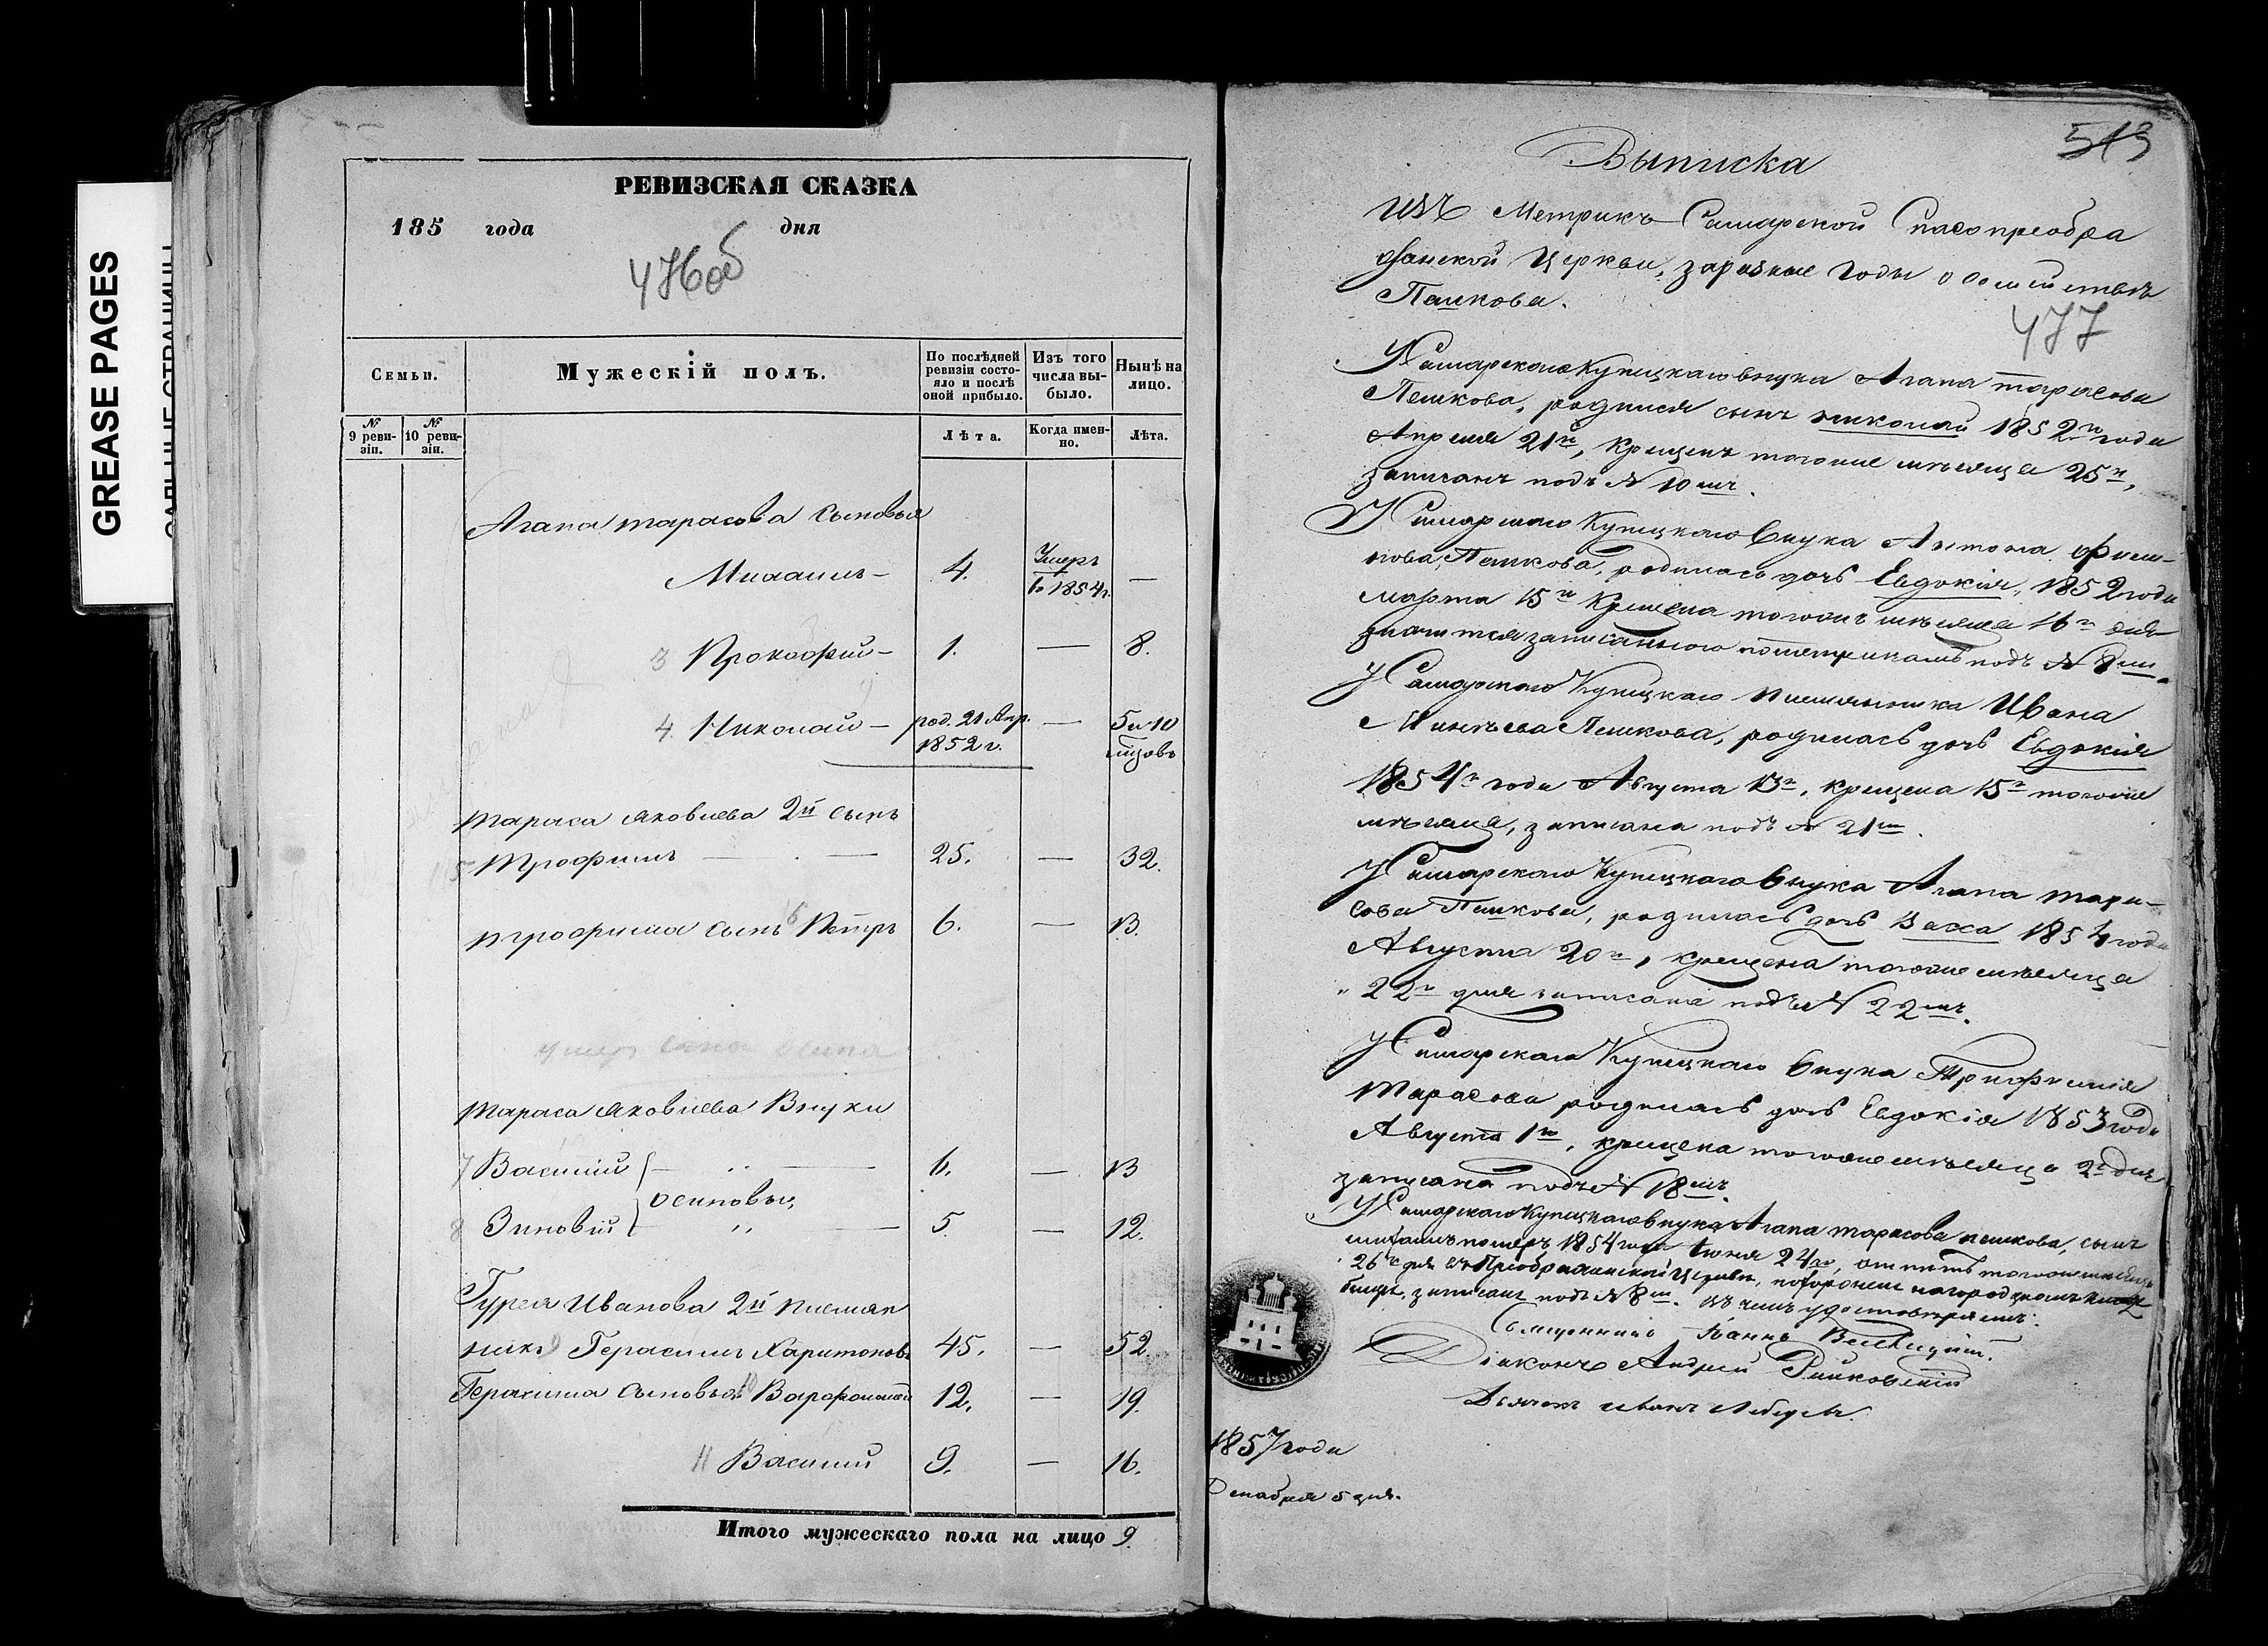 GREASE PAGES
САЛЬНЫЕ СТРАНИЦЫ
РЕВИЗСКАЯ СКАЗКА
185 года дня
476об
Семьи.
Мужескій полъ.
По послѣдней ревизіи состояло и послѣ оной прибыло.
Изъ того числа выбыло.
Нынѣ на лицо.
№ 9 ревизіи.
№ 10 ревизіи.
Лѣта.
Когда именно.
Лѣта.
Агапа Тарасова сыновья
Михаилъ — 4. Умеръ въ 1854 г. —
3 Прокофий — 1. — 8.
4 Николай — род. 21 Апр. 1852 г. — 5 и 10 мцовъ
Тараса Яковлева 2й сынъ
5 Трофимъ — 25. — 32.
Трофима сынъ 6 Петръ 6. — 13.
умер
Тараса Яковлева Внуки
7 Василий 6. — 13
Осиповы,
8 Зиновій 5. — 12.
Гурея Иванова 2й племян
никъ 9 Герасимъ Харитоновъ 45. — 52.
Герасима сыновья 10 Варфоломей 12. — 19.
11 Василий 9. — 16.
Итого мужескаго пола на лицо 9.
513
Выписка
изъ Метрикъ Самарской Спасопреобра
женской Церкви, за разные годы о семействѣ
Пешкова.
477
У Самарскаго Купецкаго внука Агапа Тарасова
Пешкова, родился сынъ Николай 1852го года
Апреля 21го, крещенъ тогоже мѣсяца 25го,
записанъ подъ № 10мъ.
У Самарскаго Купецкаго Внука Антона Фили-
пова Пешкова, родилась дочь Евдокія, 1852 года
марта 15го крещена тогожъ мѣсяца 16го дня
значится записанною по метрикамъ подъ № 8мъ.
У Самарскаго Купецкаго племянника Ивана
Пешкова, родилась дочь Евдокія
1854го года Августа 13го, крещена 15го тогоже
мѣсяца, записана подъ № 21мъ.
У Самарскаго Купецкаго Внука Агапа Тара-
сова Пешкова, родилась дочь Васса 1854 года
Августа 20го, крещена тогоже мѣсяца
22го дня записана подъ № 22мъ.
У Самарскаго Купецкаго Внука Трофима
Тарасова родилась дочь Евдокія 1853 года
Августа 1го, крещена тогоже мѣсяца 2го дня
записана подъ № 18мъ.
У Самарскаго Купецкаго внука Агапа Тарасова Пешкова, сынъ
Михаилъ померъ 1854 года Іюня 24го, отпетъ тогоже мѣсяца
26го дня въ Преображенской Церкви, похороненъ на городскомъ клад
бище, записанъ подъ № 8мъ. Въ чемъ удостовѣряемъ:
Священникъ Іоаннъ
Діаконъ Андрей
Дьячекъ Иванъ Лебедевъ.
1857 года
Декабря 5 дня.